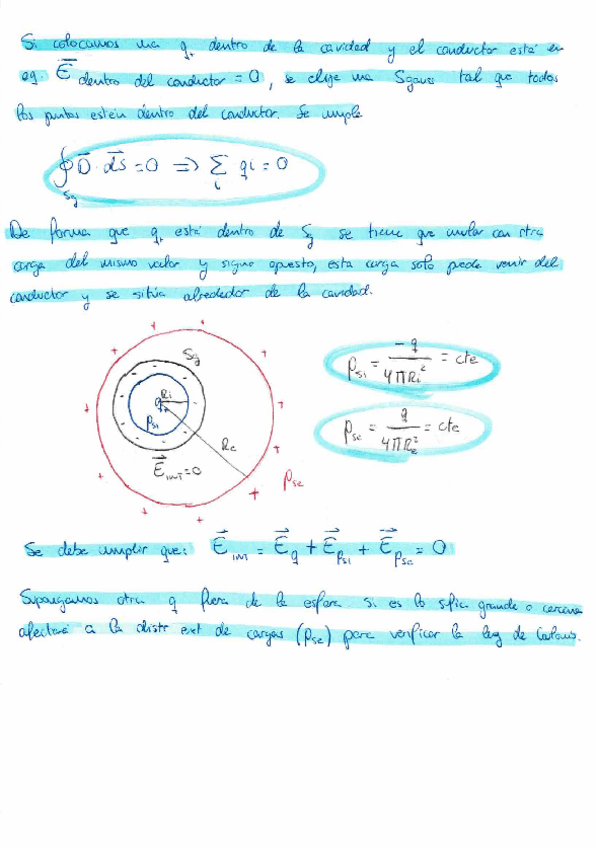 Si colocamos una q+ dentro de la cavidad y el conductor está en
eq. E⃗ dentro del conductor = 0, se elije una Sgauss tal que todos
los puntos esten dentro del conductor. Se cumple
∮Sg D⃗ · ds⃗ = 0 ⇒ Σi qi = 0
De forma que q+ está dentro de Sg se tiene que anular con otra
carga del mismo valor y signo opuesto, esta carga solo puede venir del
conductor y se sitúa alrededor de la cavidad.
Sg
Ri
q+
ρsi
Re
E⃗int = 0
ρse
ρsi = -q / 4πRi² = cte
ρse = q / 4πRe² = cte
Se debe cumplir que: E⃗int = E⃗q + E⃗ρsi + E⃗ρse = 0
Supongamos otra q fuera de la esfera. Si es lo sfic grande o cercana
afectará a la distr ext de cargas (ρse) para verificar la ley de